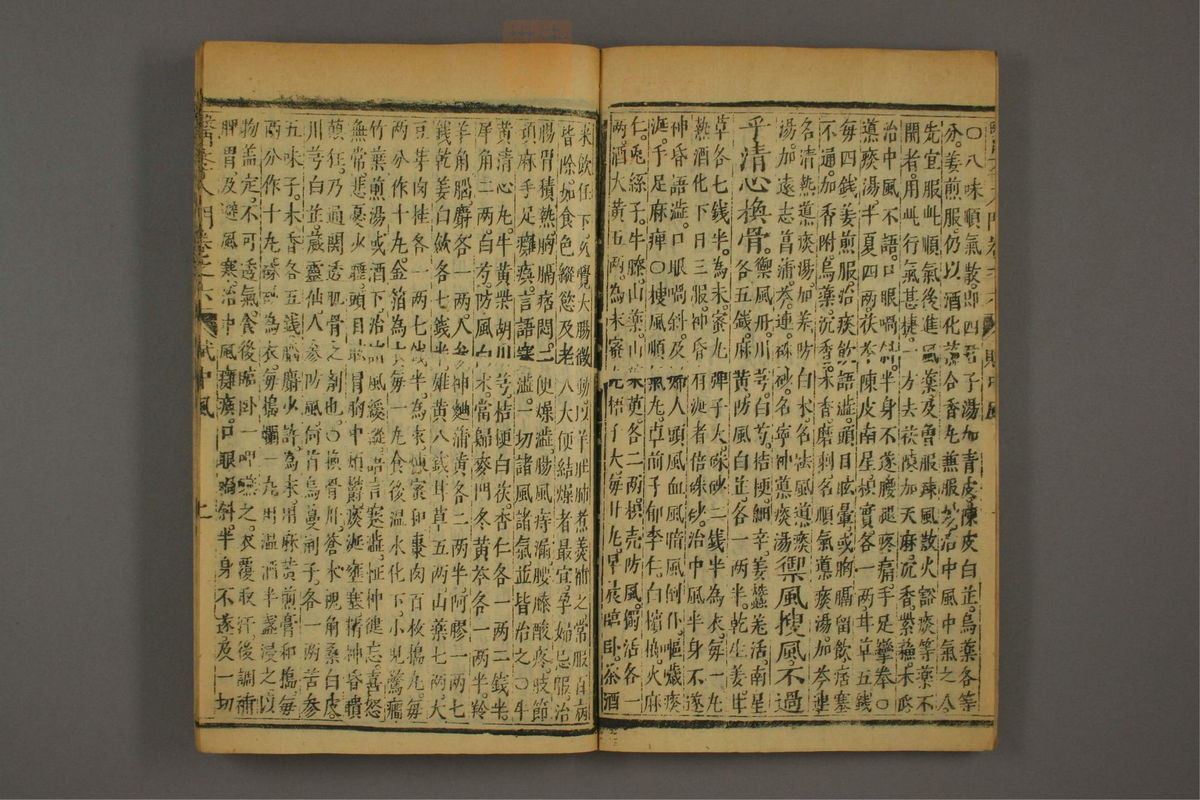 〇八味順氣散即四君子湯加青皮陳皮白芷烏藥各等
分姜煎服仍以酒化蘇合香丸兼服治中風中氣之人
先宜服此順氣後進風藥及曾服疎風散火豁痰等藥不
開者用此行氣甚捷一方去茯陵加天麻沉香紫蘓木瓜
治中風不語口眼喎斜半身不遂腰腿疼痛手足攣拳〇
導痰湯半夏四兩茯苓陳皮南星枳實各一兩甘草五錢
每四錢姜煎服治痰飲語澁頭目眩暈或胸膈留飲痞塞
不通加香附烏藥沉香木香磨刺名順氣導痰湯加芩連
名清熱導痰湯加羌防白术名祛風導痰湯禦風搜風不過
湯加遠志菖蒲芩連硃砂名寧神導痰
乎清心換骨禦風丹川芎白芍桔梗細辛姜蠶羗活南星
各五錢麻黃防風白芷各一兩半乾生姜甘
草各七錢半為末蜜丸彈子大硃砂二錢半為衣每一丸
熱酒化下日三服神昏有涎者倍硃砂治中風半身不遂
神昏語澁口眼喎斜及婦人頭風血風暗風倒仆嘔噦痰
涎手足麻痺〇搜風順氣丸車前子郁李仁白檳榔火麻
仁兎絲子牛膝山藥山茱萸各二兩枳壳防風獨活各一
兩酒大黃五兩為末蜜丸梧子大每廿丸早晨臨卧茶酒
米飲任下久覺大腸微動以羊肚肺煮羹補之常服百病
皆除如食色縱慾及老人大便結燥者最宜孕婦忌服治
腸胃積熱胸膈痞悶二便燥澁腸風痔漏腰膝酸疼肢節
頑麻手足癱瘓言語蹇澁一切諸風諸氣並皆治之〇牛
黃清心丸牛黃柴胡川芎桔梗白茯杏仁各一兩二錢半
犀角二兩白芍防風白术當歸麥門冬黃芩各一兩半羚
羊角腦麝各一兩人參神麯蒲黃各二兩半阿膠一兩七
錢乾姜白蘞各七錢半雄黃八錢甘草五兩山藥七兩大
豆黃肉桂各一兩七錢半為末煉蜜和棗肉百枚搗丸每
兩分作十丸金箔為衣每一丸食後溫水化下小兒驚癎
竹葉煎湯或酒下治諸風緩縱語言蹇澁怔忡徤忘喜怒
無常悲憂少睡頭目眩冒胸中煩鬱痰涎壅塞精神昏憒
顛狂乃通關透肌骨之劑也〇換骨丹蒼术槐角桑白皮
川芎白芷葳靈仙人參防風何首烏蔓荆子各一兩苦參
五味子木香各五錢腦麝少許為末用麻黃煎膏和搗每
兩分作十丸硃砂為衣每搗爛一丸用溫酒半盞浸之以
物盖定不可透氣食後臨卧一呷嚥之衣覆取汗後調補
脾胃及避風寒治中風癱瘓口眼喎斜半身不遂及一切
醫學入門卷之六 賦中風 七